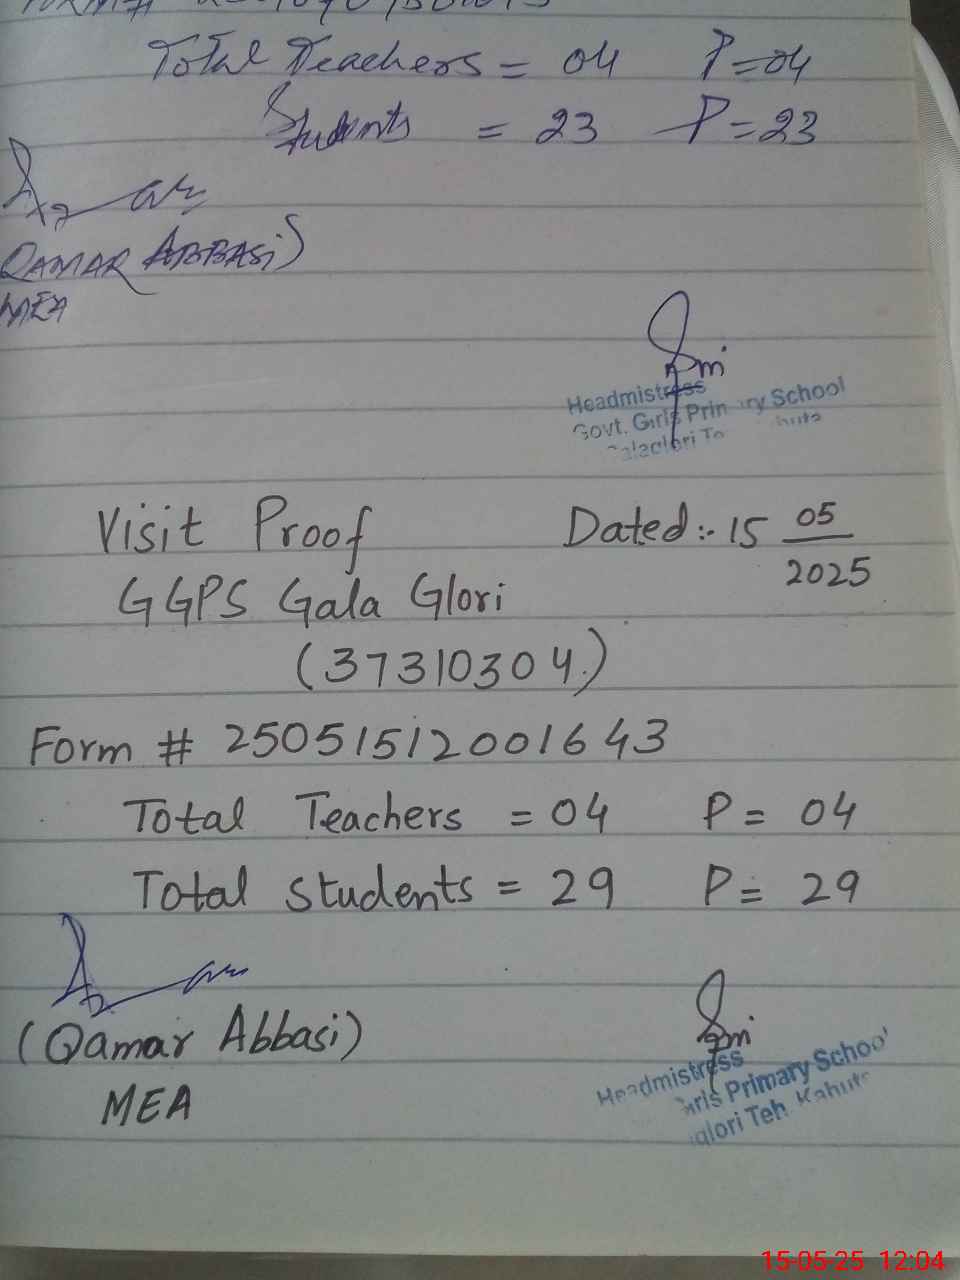 Total Teachers = 04 P=04
Students = 23 P=23
QAMAR ABBASI
MEA
Headmistress
Govt. Girls Primary School
Visit Proof Dated:- 15 05/2025
GGPS Gala Glori
(37310304)
Form # 25051512001643
Total Teachers = 04 P= 04
Total Students = 29 P= 29
(Qamar Abbasi)
MEA
Headmistress
Girls Primary School
Teh. Kahuta
15-05-25 12:04